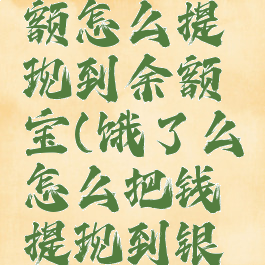 额怎么提
现到余额
宝(饿了么
怎么把钱
提现到银